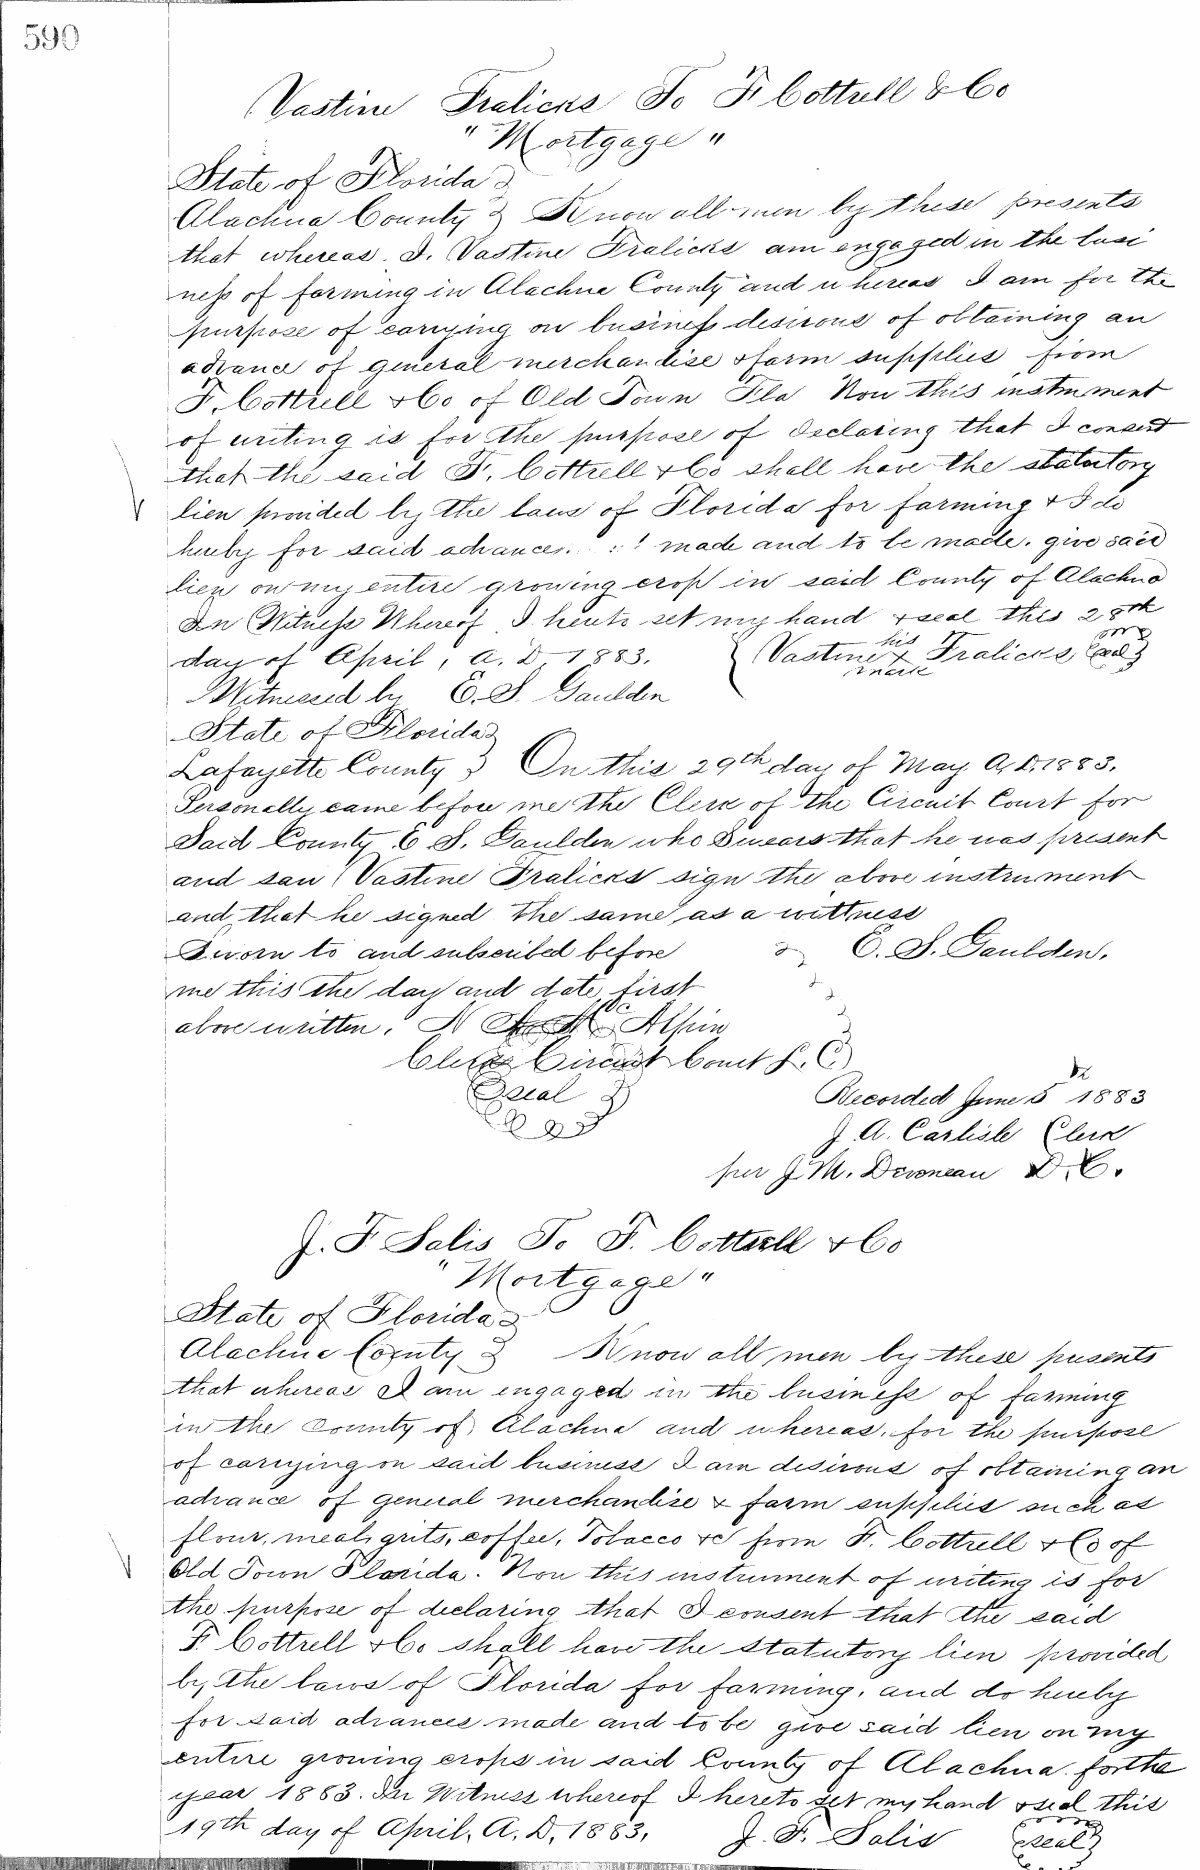 590
Vastine Fralicks To F Cottrell & Co
"Mortgage"
State of Florida }
Alachua County } Know all men by these presents
that whereas. I. Vastine Fralicks am engaged in the busi
ness of farming in Alachua County and whereas I am for the
purpose of carrying on business desirous of obtaining an
advance of general merchandise & farm supplies from
F. Cottrell & Co of Old Town Fla Now this instrument
of writing is for the purpose of declaring that I consent
that the said F. Cottrell & Co shall have the statutory
lien provided by the laws of Florida for farming & I do
hereby for said advances made and to be made. give said
lien on my entire growing crop in said County of Alachua
In Witness Whereof I hereto set my hand & seal this 28th
day of April, A. D. 1883. { Vastine his x mark Fralicks (seal)
Witnessed by E. S. Gaulden
State of Florida }
Lafayette County } On this 29th day of May A. D. 1883.
Personally came before me the Clerk of the Circuit Court for
Said County E S. Gaulden who Swears that he was present
and saw Vastine Fralicks sign the above instrument
and that he signed the same as a wittness
Sworn to and subscribed before } E. S. Gaulden.
me this the day and date first
above written. N Mc Alpin
Clerk Circuit Court L. C
Seal
Recorded June 5 1883
J. A. Carlisle Clerk
per J. M. Devoneau D. C.
J. F. Salis To F. Cottrell & Co
"Mortgage"
State of Florida }
Alachua County } Know all men by these presents
that whereas I am engaged in the business of farming
in the County of Alachua and whereas, for the purpose
of carrying on said business I am desirous of obtaining an
advance of general merchandise & farm supplies such as
flour, meal, grits, coffee, Tobacco &c from F. Cottrell & Co of
Old Town Florida. Now this instrument of writing is for
the purpose of declaring that I consent that the said
F. Cottrell & Co shall have the statutory lien provided
by the laws of Florida for farming, and do hereby
for said advances made and to be give said lien on my
entire growing crops in said County of Alachua for the
year 1883. In Witness whereof I hereto set my hand & seal this
19th day of April, A. D. 1883. J. F. Salis (seal)